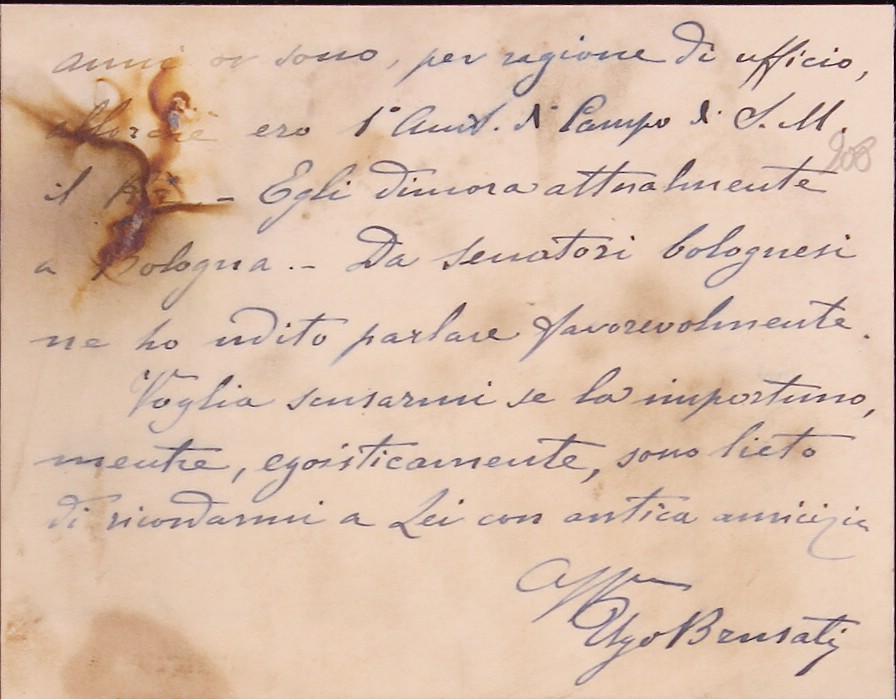 anni or sono, per ragione di ufficio,
allorchè ero 1° Aiut. di Campo di S. M.
208
il Re. - Egli dimora attualmente
a Bologna. - Da Senatori bolognesi
ne ho udito parlare favorevolmente.
Voglia scusarmi se la importuno,
mentre, egoisticamente, sono lieto
di ricordarmi a Lei con antica amicizia
Aff
Ugo Brusati